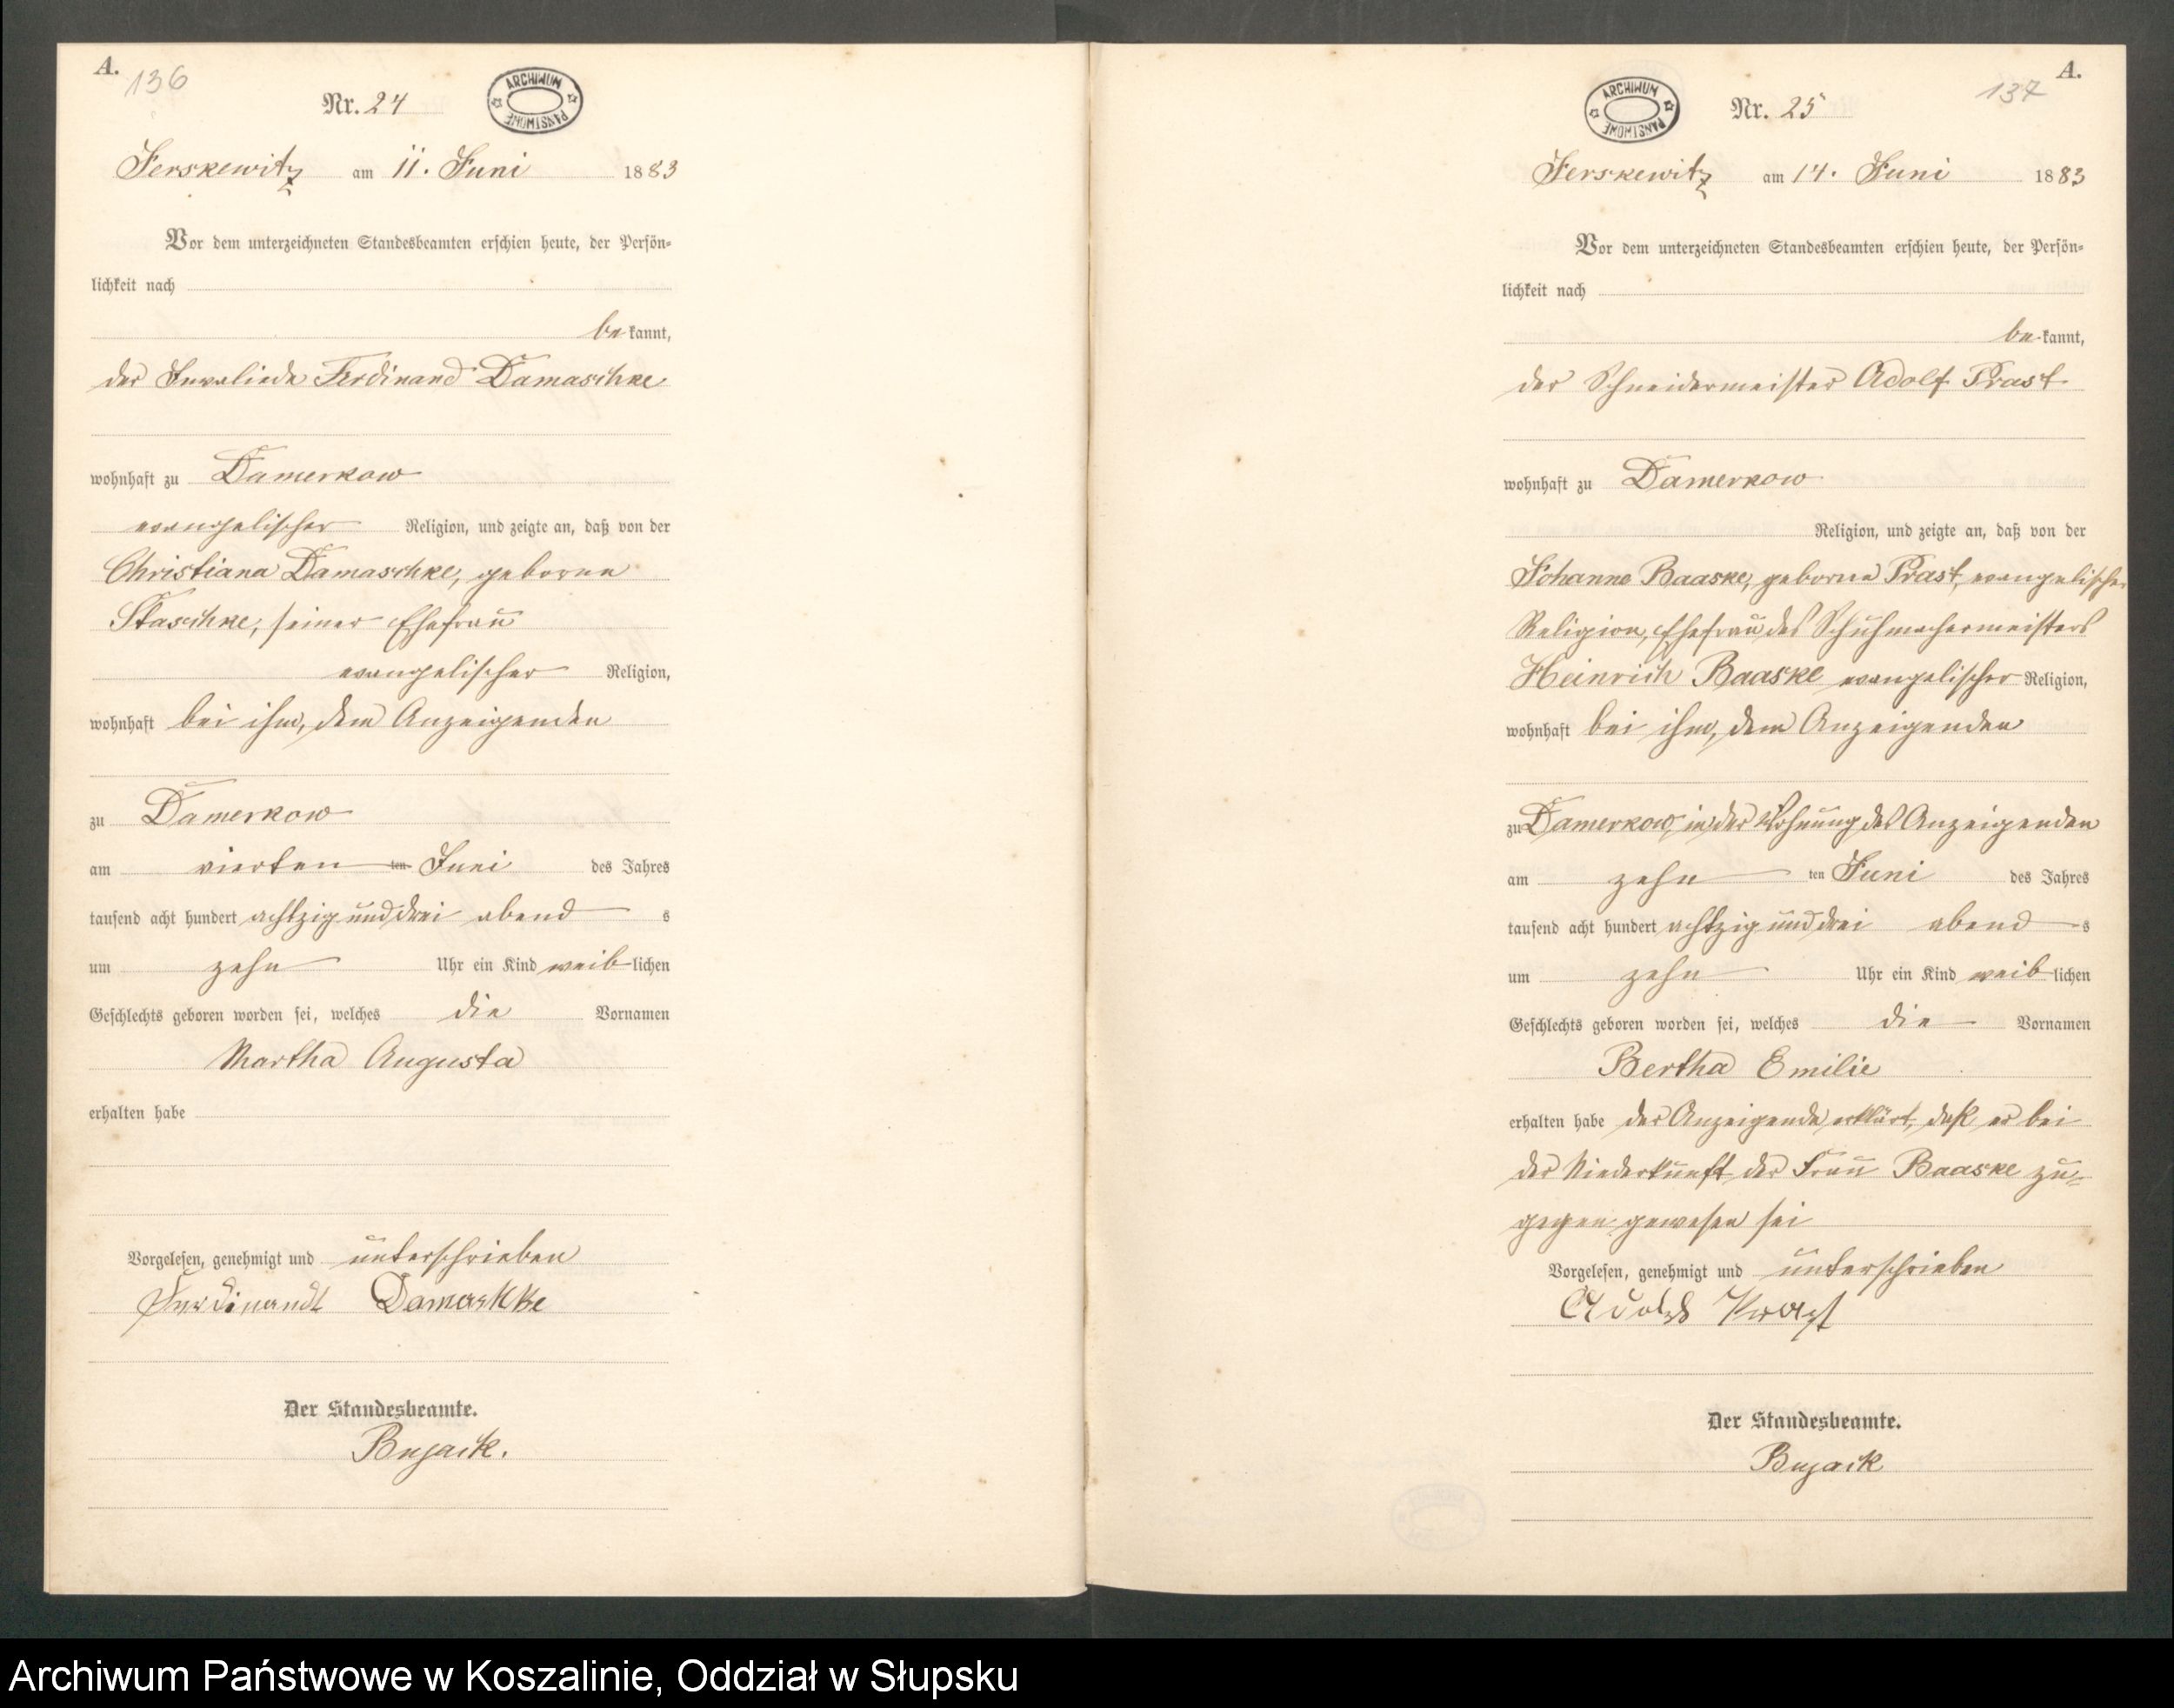 A.
136
Nr. 24
ARCHIWUM PAŃSTWOWE
Jerskewitz am 11. Juni 1883
Vor dem unterzeichneten Standesbeamten erschien heute, der Persön=
lichkeit nach
be kannt,
der Invaliede Ferdinand Damaschke
wohnhaft zu Damerkow
evangelischer Religion, und zeigte an, daß von der
Christiana Damaschke, geborne
Staschke, seiner Ehefrau
evangelischer Religion,
wohnhaft bei ihm, dem Anzeigenden
zu Damerkow
am vierten ten Juni des Jahres
tausend acht hundert achtzig und drei abend s
um zehn Uhr ein Kind weib lichen
Geschlechts geboren worden sei, welches die Vornamen
Martha Augusta
erhalten habe
Vorgelesen, genehmigt und unterschrieben
Ferdinandt Damaskke
Der Standesbeamte.
Bujack.
A.
137
ARCHIWUM PAŃSTWOWE
Nr. 25
Jerskewitz am 14. Juni 1883
Vor dem unterzeichneten Standesbeamten erschien heute, der Persön=
lichkeit nach
be kannt,
der Schneidermeister Adolf Prast
wohnhaft zu Damerkow
Religion, und zeigte an, daß von der
Johanne Baaske, geborne Prast, evangelischer
Religion, Ehefrau des Schuhmachermeisters
Heinrich Baaske evangelischer Religion,
wohnhaft bei ihm, dem Anzeigenden
zu Damerkow, in der Wohnung des Anzeigenden
am zehn ten Juni des Jahres
tausend acht hundert achtzig und drei abend s
um zehn Uhr ein Kind weib lichen
Geschlechts geboren worden sei, welches die Vornamen
Bertha Emilie
erhalten habe der Anzeigende erklärt, daß er bei
der Niederkunft der Frau Baaske zu=
gegen gewesen sei
Vorgelesen, genehmigt und unterschrieben
Adolf Prast
Der Standesbeamte.
Bujack
Archiwum Państwowe w Koszalinie, Oddział w Słupsku